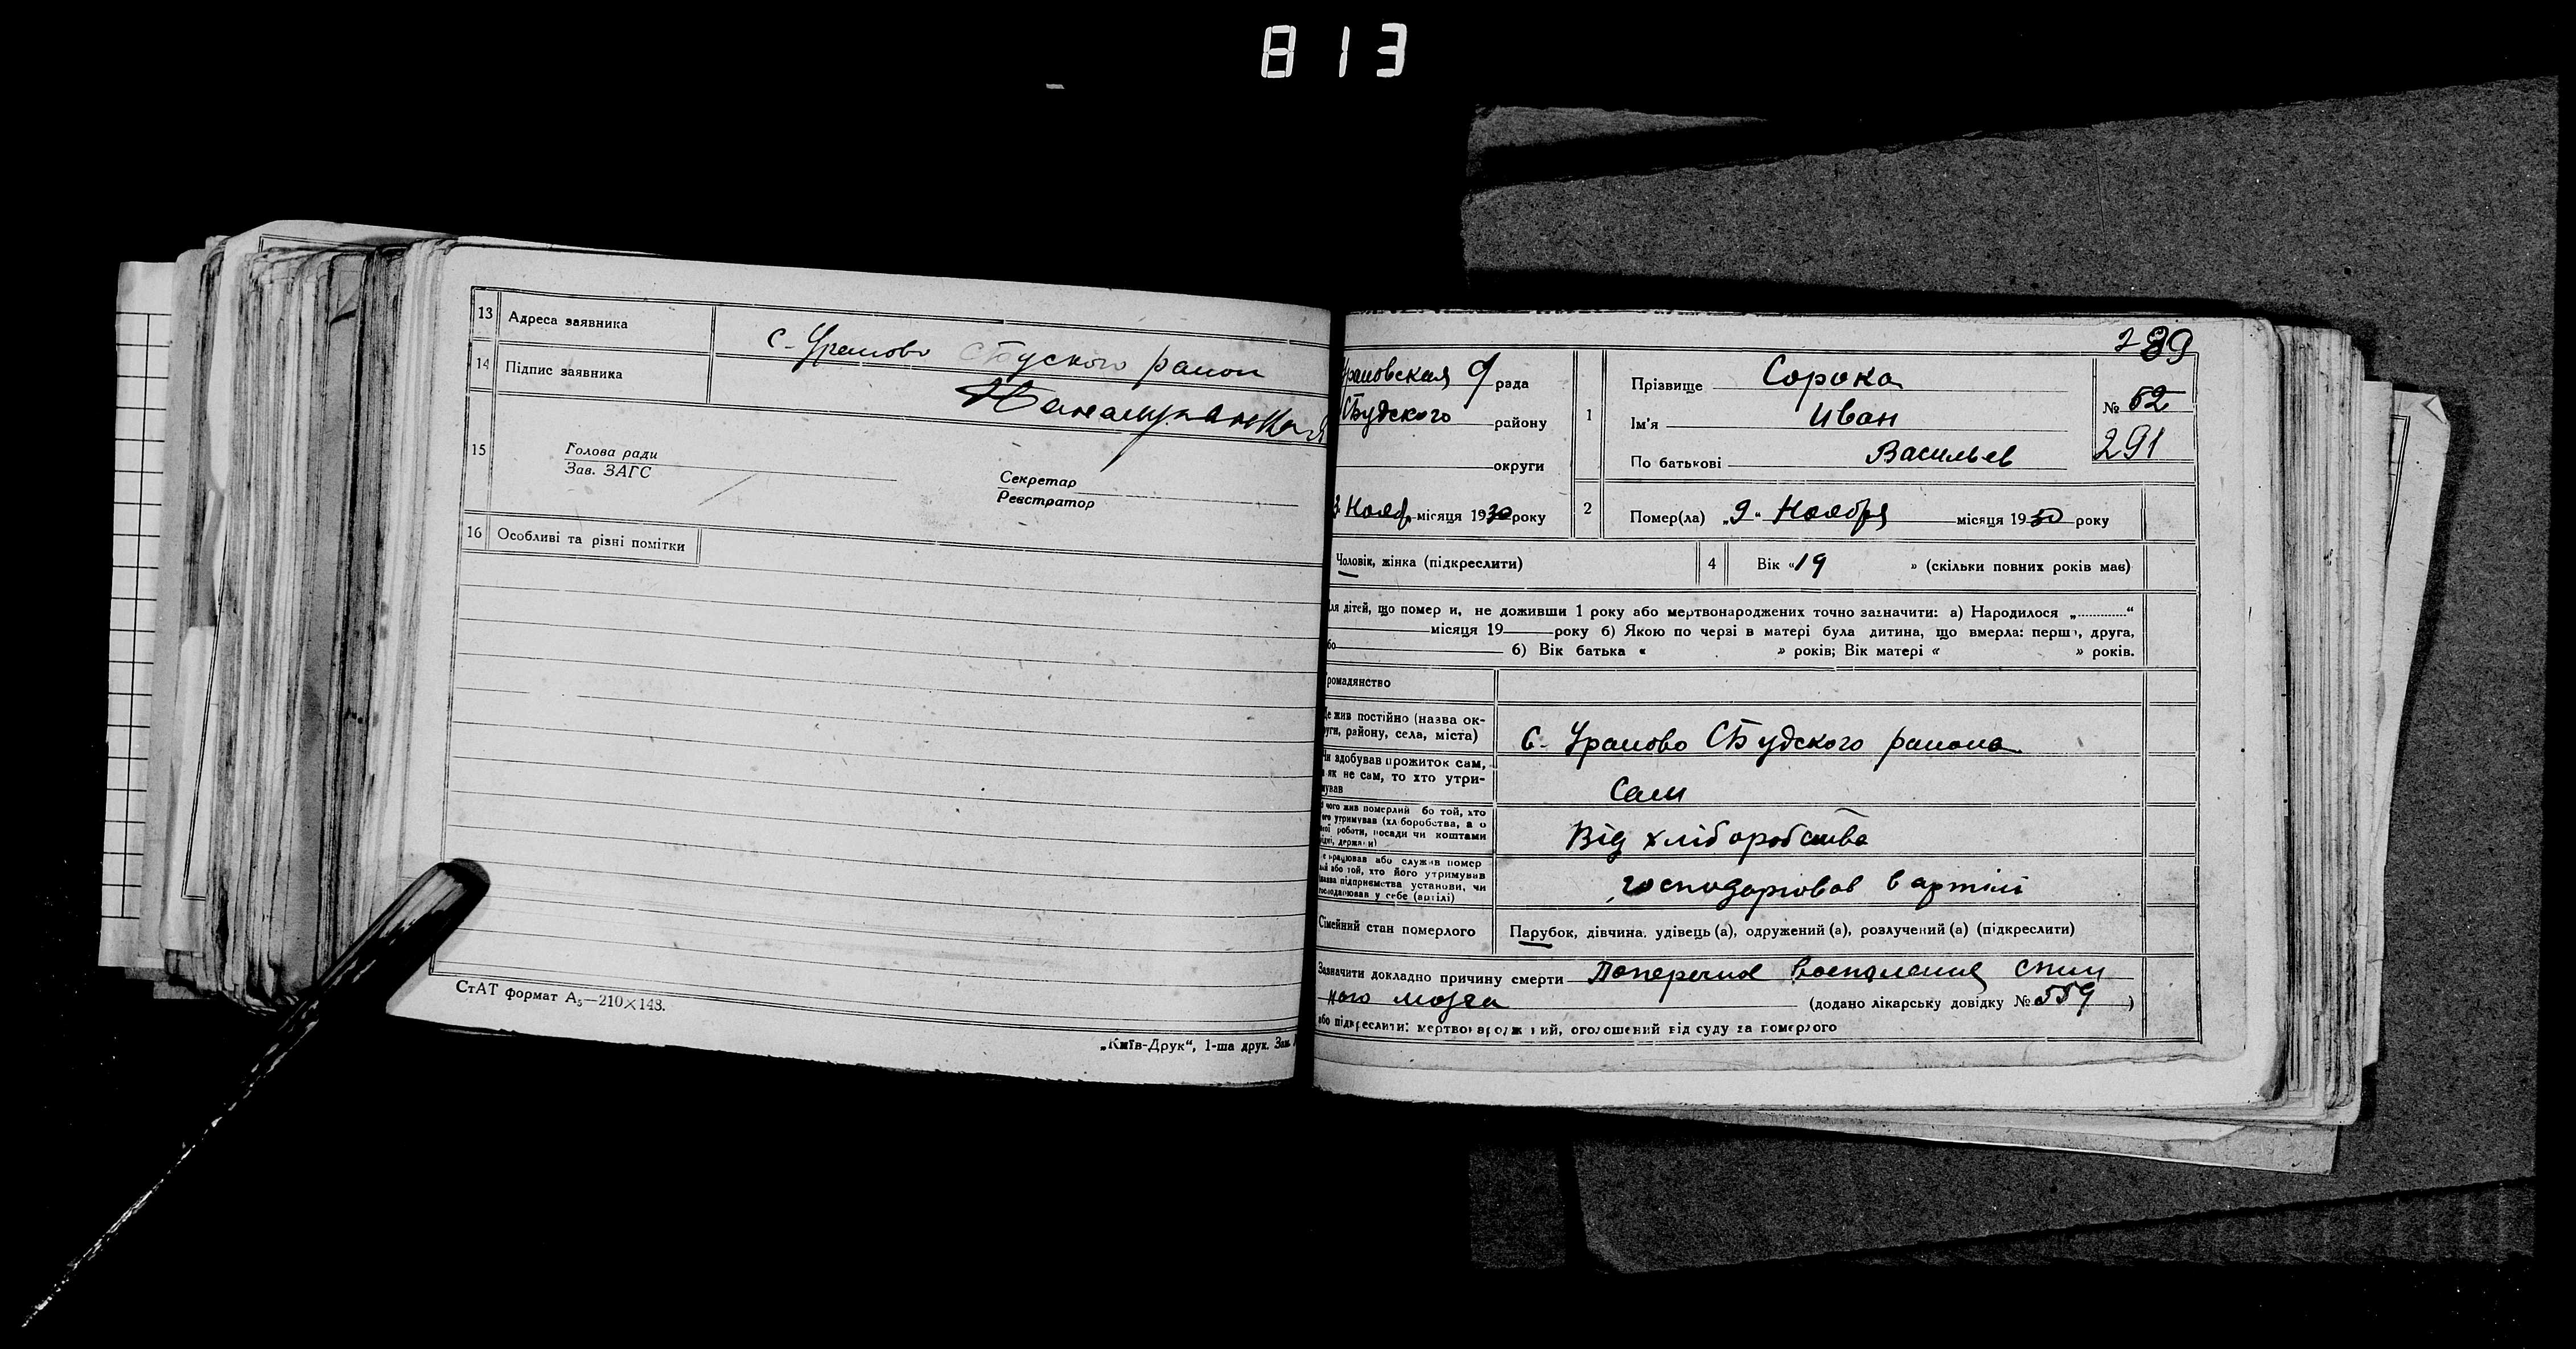 813
13 Адреса заявника с. Уралово СБуского район
14 Підпис заявника
15 Голова ради
Зав. ЗАГС
Секретар
Реєстратор
16 Особливі та різні помітки
СтАТ формат А₅—210×148.
„Київ-Друк“, 1-ша друк. Зам.
289
Ураловская рада
СБудского району
округи
Нояб. місяця 1930 року
1 Прізвище Сорока
Ім'я Иван
По батькові Васильев
№ 62
291
2 Помер(ла) „9“ Ноября місяця 1930 року
Чоловік, жінка (підкреслити)
4 Вік «19 » (скільки повних років має)
для дітей, що померли, не доживши 1 року або мертвонароджених точно зазначити: а) Народилося „............“
місяця 19 року б) Якою по черзі в матері була дитина, що вмерла: перша, друга,
або б) Вік батька « » років; Вік матері « » років.
Громадянство
Де жив постійно (назва ок-
руги, району, села, міста) С. Уралово СБудского района
Чи здобував прожиток сам,
а як не сам, то хто утри-
мував Сам
З чого жив померлий або той, хто
його утримував (хліборобства, а о
роботи, посади чи коштами
держави) Від хліборобства
Де працював або служив помер
лий або той, хто його утримував
назва підприємства установи, чи
господарював у себе (артілі) господарював в артілі
Сімейний стан померлого Парубок, дівчина, удівець (а), одружений (а), розлучений (а) (підкреслити)
Зазначити докладно причину смерти Поперечное воспаление спин
ного мозга (додано лікарську довідку № 559 )
або підкреслити: мертвонароджений, оголошений від суду за померлого